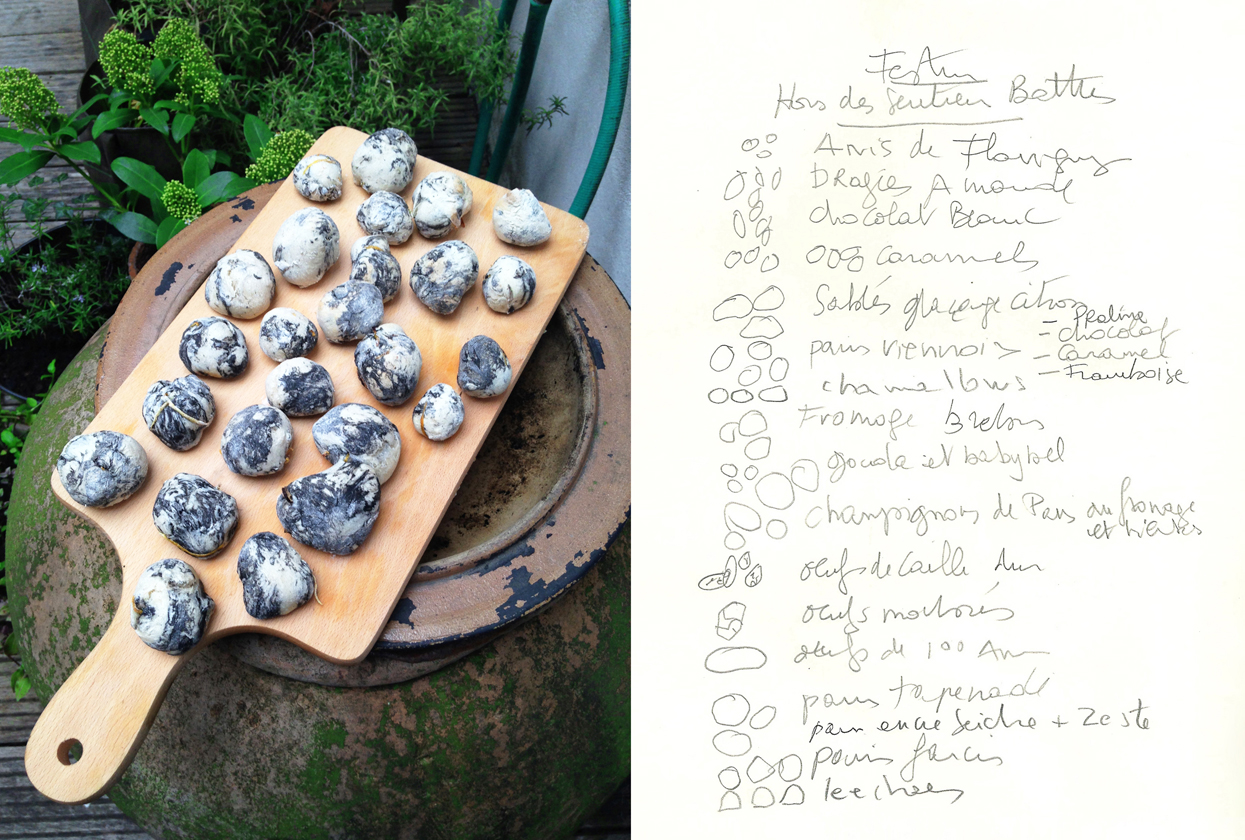 Festin
Hors des Sentiers Battus
Anis de Flavigny
Dragées Amande
chocolat Blanc
caramels
Sablés glaçage citron
- Praline
- chocolat
pains viennois
- Caramel
- Framboise
chamallows
Fromage bretons
gouda et babybel
champignons de Paris au fromage
et
oeufs de Caille dur
oeufs marbrés
oeufs de 100 Ans
pains tapenade
pain encre Seiche + Zeste
pains farcis
leechees